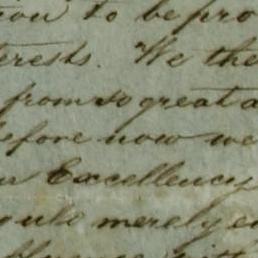 to be pro
terests. We the
from so great a
efore now we
Excellency
merely